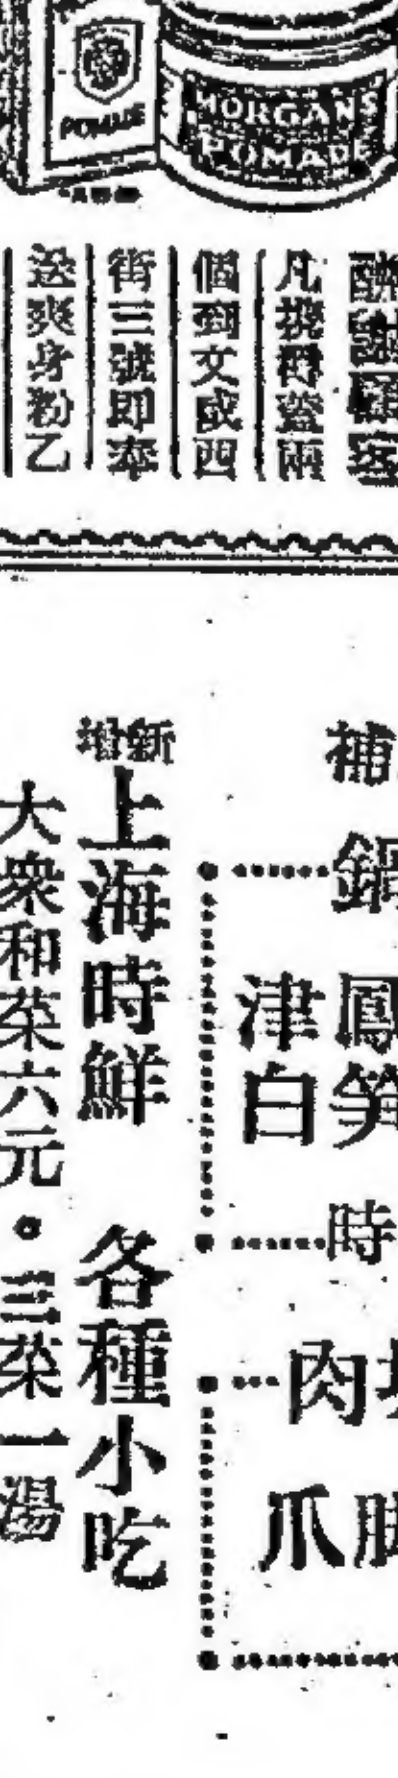 POMADE
MORGAN'S
POMADE
酬謝顧客
凡携舊蓋兩
個到文咸西
街三號即奉
送爽身粉乙
補
鍋
鳳
時
津白
肉
爪
新增
上海時鮮 各種小吃
大衆和菜六元。三菜一湯